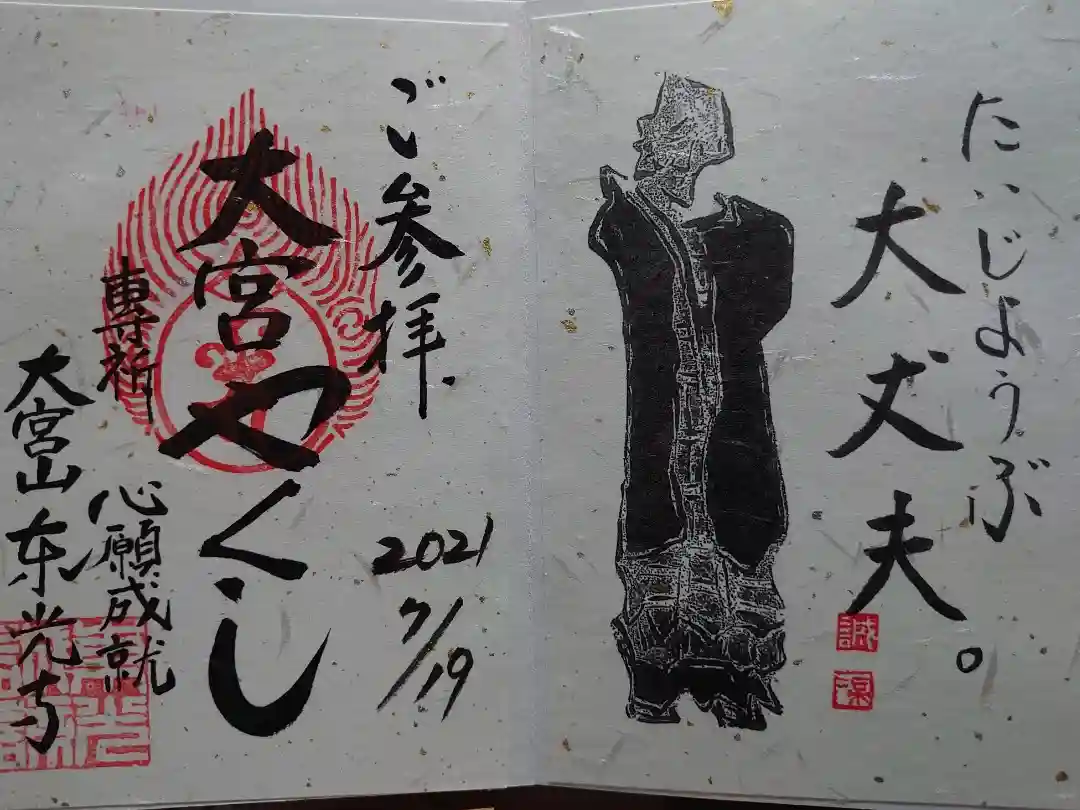 たいじようぶ
大丈夫。
誠
ご参拝
2021
7/19
大宮やくし
専祈
心願成就
大宮山东光寺